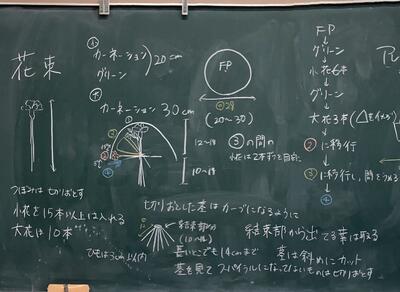 花束
① カーネーション
グリーン
20cm
④ カーネーション 30cm
FP
(20~30)
③の間の
小花は2本ずつを目安に
12~18
10~18
つぼみは切りおとす
小花を15本以上は入れる
大花は10本
ひもは3cm以内
切りおとした茎はカーブになるように
結束部分
(10~18)
長いとこでも14cmまで
茎を見てスパイラルになってないものは切りおとす
結束部から出てる葉は取る
茎は斜めにカット
FP
グリーン
小花6本
グリーン
大花3本
②に移行
③に移行し、間を
④